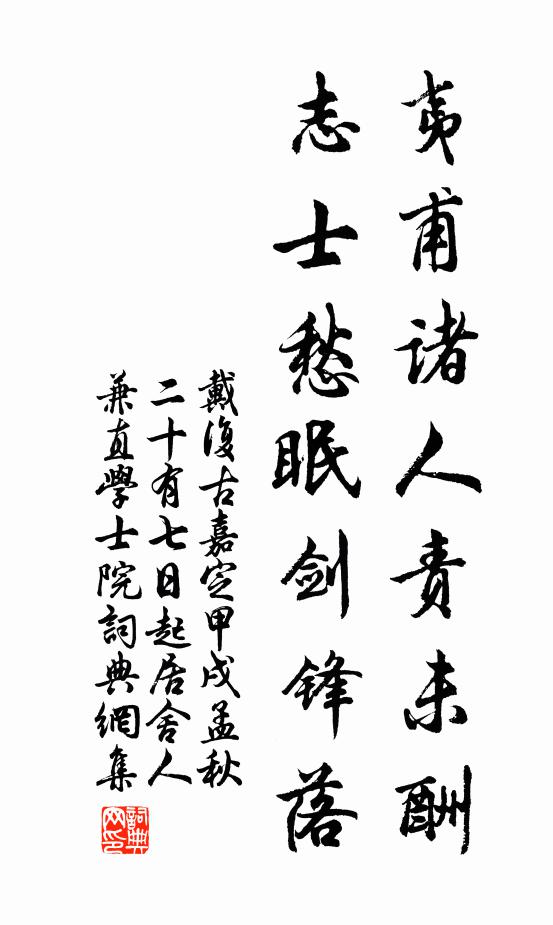 夷甫諸人責未酬
志士愁眠劍鋒落
戴復古嘉定甲戌孟秋
二十有七日起居舍人
兼直學士院詞典網集
詞典
网印